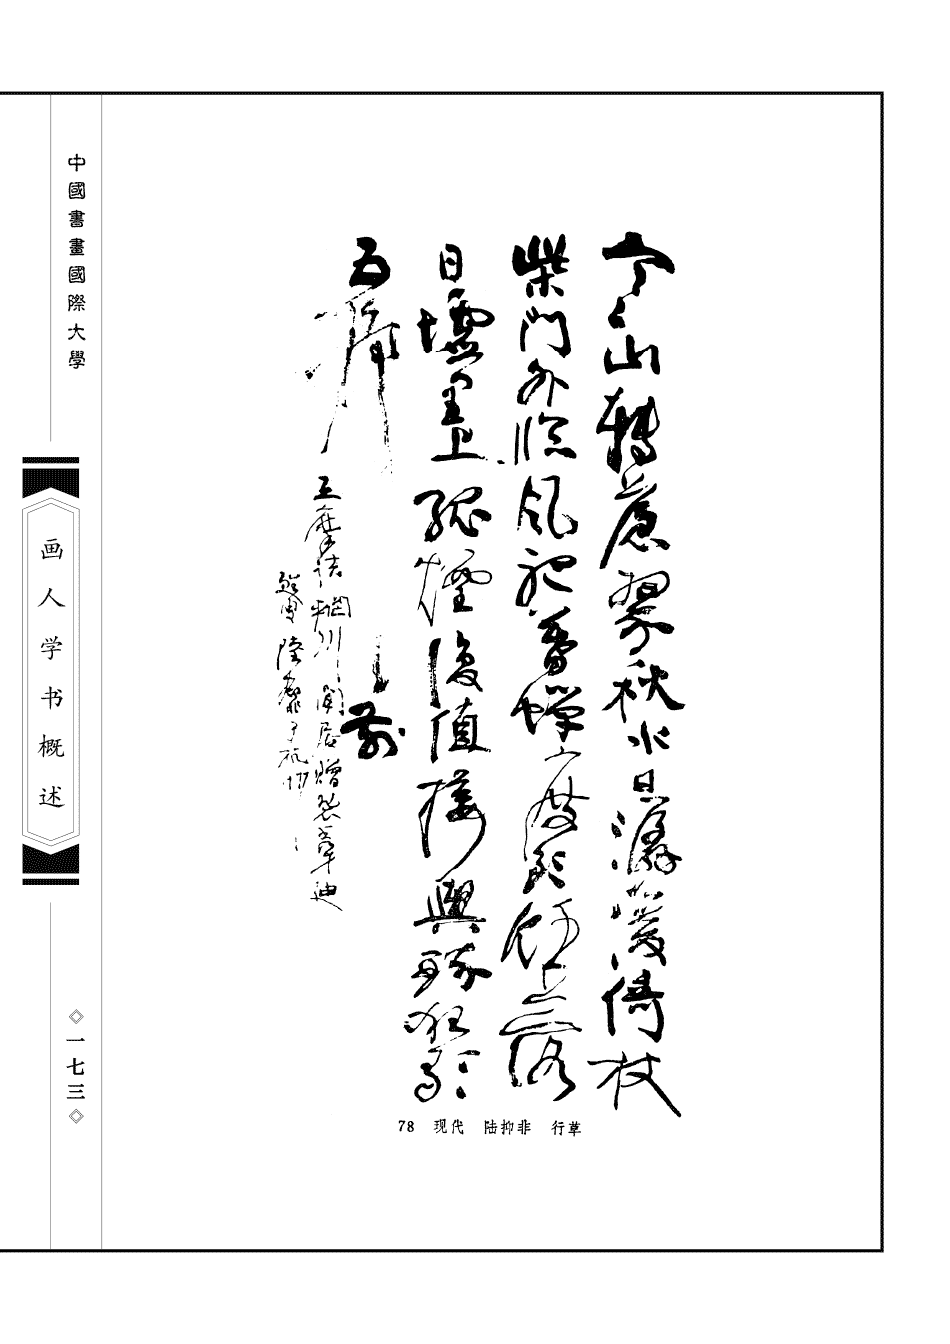 中國書畫國際大學
画人学书概述
一七三
寒山轉蒼翠秋水日潺湲倚杖
柴門外臨風聽暮蟬渡頭餘落
日墟里上孤煙復值接輿醉狂歌
五柳前
王摩詰輞川閒居贈裴秀才迪
叟陸于杭州
78 现代 陆抑非 行草